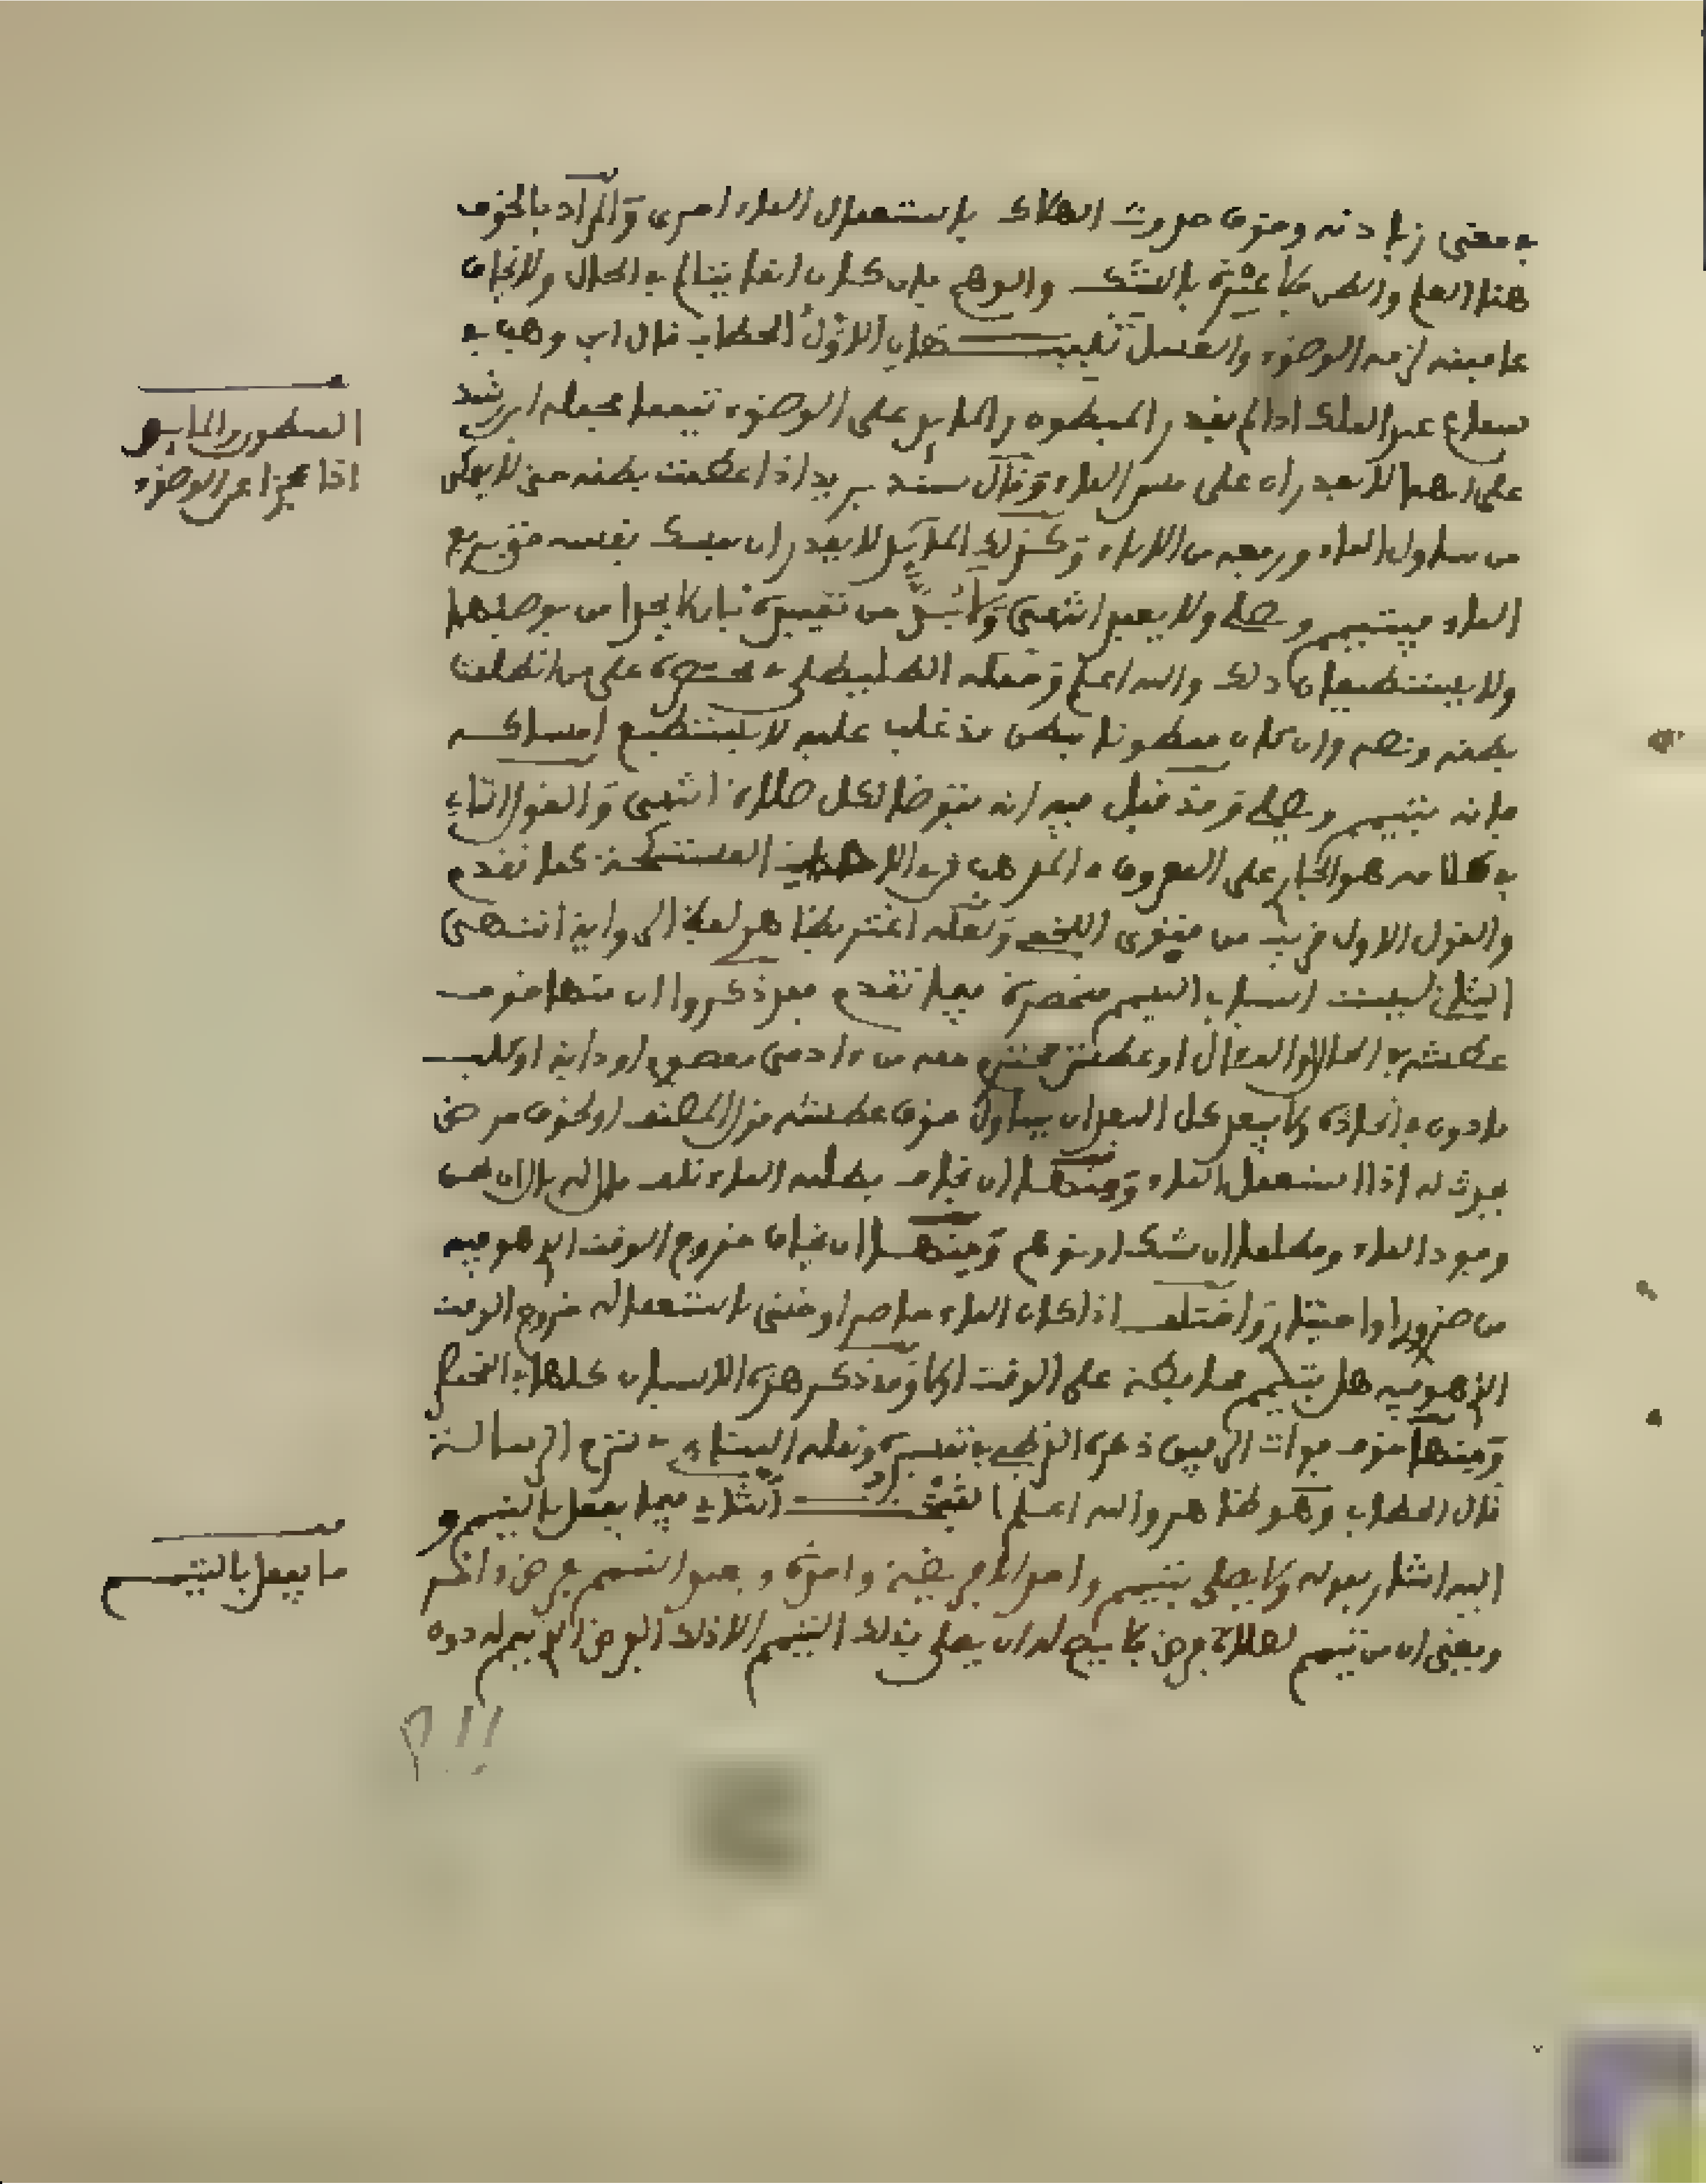 في معنى زيادته وخوف حدوث الهلاك باستعمال الماء احرى والمراد بالخوف
هنا العلم والظن ولا عبرة بالشك والوهم فان كان انما يتالم في الحال ولا يخاف
عاقبته لزمه الوضوء والغسل تنبيهان الاول الحطاب قال ابن وهب في
سماع عبد الملك اذا لم يقدر المبطون والمايد على الوضوء تيمما فحمله ابن رشد
على انهما لا يقدران على مس الماء وقال سند يريد اذا عظمت بطنه حتى لا يمكن
من تناول الماء ورفعه من الاناء وكذلك المايد لا يقدر ان يمسك نفسه حتى يرفع
الماء فيتيمم ويصلي ولا يعيد انتهى ولا بد من تقييده بان لا يجدا من يوضئهما
ولا يستطيعان ذلك والله اعلم وحمله الطليطلي في مختصره على من انطلقت
بطنه ونصه وان كان مبطونا ببطن قد غلب عليه لا يستطيع امساكه
فانه يتيمم ويصلي وقد قيل فيه انه يتوضا لكل صلاة انتهى والقول الثاني
في كلامه هو الجاري على المعروف في المذهب في الاحداث المستنكحة كما تقدم
والقول الاول قريب من فتوى اللخمي ولعله اغتر بظاهر لفظ الرواية انتهى
الثاني ليست اسباب التيمم منحصرة فيما تقدم فقد ذكروا ان منها خوف
عطشه في الحال او المآل او عطش محترم معه من ادمي معصوم او دابة او كلب
ماذون في اتخاذه
يحدث له اذا استعمل الماء ومنها ان يخاف بطلبه الماء تلف مال له بال ان ظن
وجود الماء ومطلقا ان شك او توهم ومنها ان يخاف خروج الوقت الذي هو فيه
من ضروري او اختياري واختلف اذا كان الماء حاضرا وخشي باستعماله خروج الوقت
الذي هو فيه هل يتيمم محافظة على الوقت او لا وقد ذكر هذه الاسباب كلها في المختصر
ومنها خوف فوات الرفيق ذكره القرطبي في تفسيره ونقله في شرح الرسالة
قال الحطاب وهو ظاهر والله اعلم الثاني فيما يفعل بالتيمم و
اليه اشار بقوله ولا يصلي بتيمم واحد الا فريضة واحدة
ويعني ان من تيمم لصلاة فرض فلا يصح له ان يصلي بذلك التيمم الا ذلك الفرض الذي تيمم له دون
المبطون والمايد
اذا عجزا عن الوضوء
ما يفعل بالتيمم